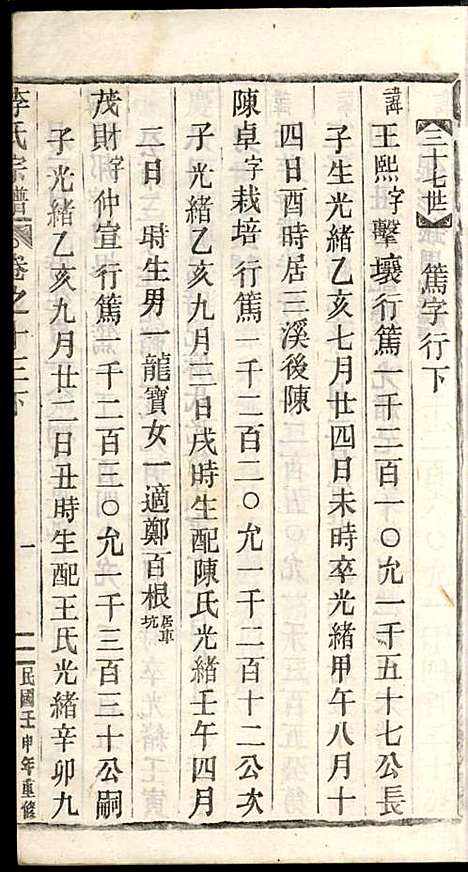 【三十七世】 篤字行下
諱王熙字擊壤行篤一千二百一〇允一千五十七公長
子生光緒乙亥七月廿四日未時卒光緒甲午八月十
四日酉時居三溪後陳
陳卓字栽培行篤一千二百二〇允一千二百十二公次
子光緒乙亥九月三日戌時生配陳氏光緒壬午四月
二日 時生男一龍寶女一適鄭百根居車坑
茂財字仲宣行篤一千二百三〇允一千三百三十公嗣
子光緒乙亥九月廿二日丑時生配王氏光緒辛卯九
李氏宗譜 卷之十三下 一 民國壬申年重修